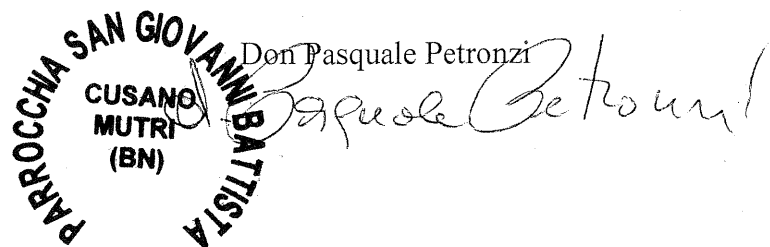 PARROCCHIA SAN GIOVANNI BATTISTA
CUSANO
MUTRI
(BN)
Don Pasquale Petronzi
d. Pasquale Petronzi